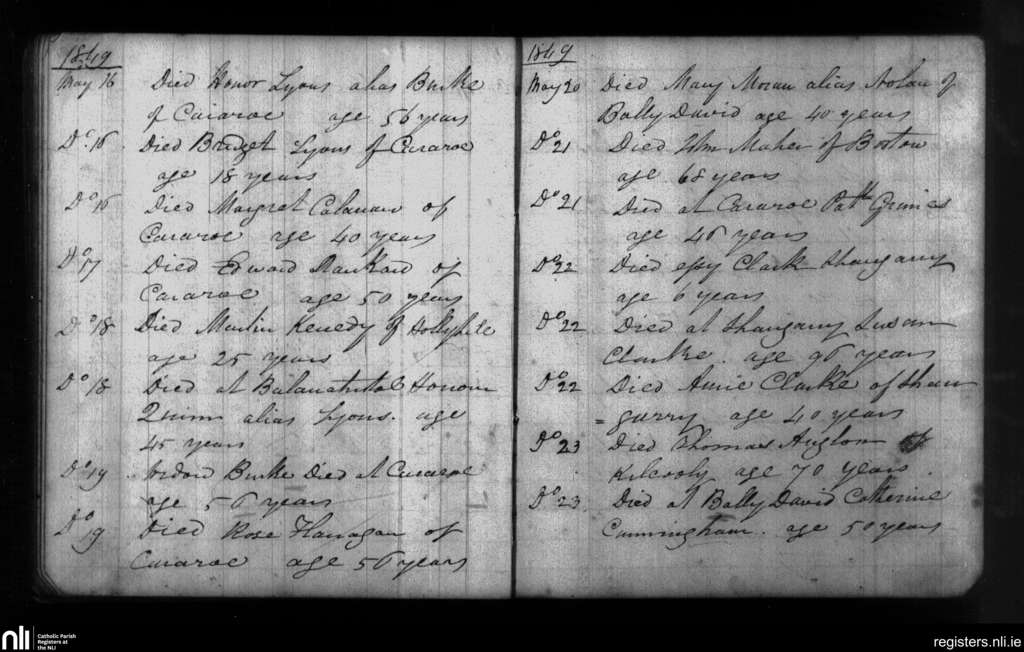 1849
May 16 Died Honor Lyons alias Burke
of Curaroe age 56 years
Do 16 Died Bridget Lyons of Curaroe
age 18 years
Do 16 Died Margret Calanan of
Curaroe age 40 years
Do 17 Died Edward Mankard of
Curaroe age 50 years
Do 18 Died Martin Kenedy of Hollyhile
age 25 years
Do 18 Died at Honour
Quinn alias Lyons. age
45 years
Do 19 Widow Burke Died at Curaroe
age 56 years
Do 19 Died Rose Flanagan of
Curaroe age 56 years
1849
May 20 Died Mary Moran alias Nolan of
Bally David age 40 years
Do 21 Died Wm Maher of Boston
age 68 years
Do 21 Died at Curaroe Patk Grimes
age 46 years
Do 22 Died Clark Shangarry
age 6 years
Do 22 Died at Shangarry Susan
Clarke. age 96 years
Do 22 Died Annie Clarke of Shan
=garry age 40 years
Do 23 Died Thomas of
age 70 years.
Do 23 Died at Bally David Catherine
Cunningham. age 50 years
nli
Catholic Parish
Registers at
the NLI
registers.nli.ie